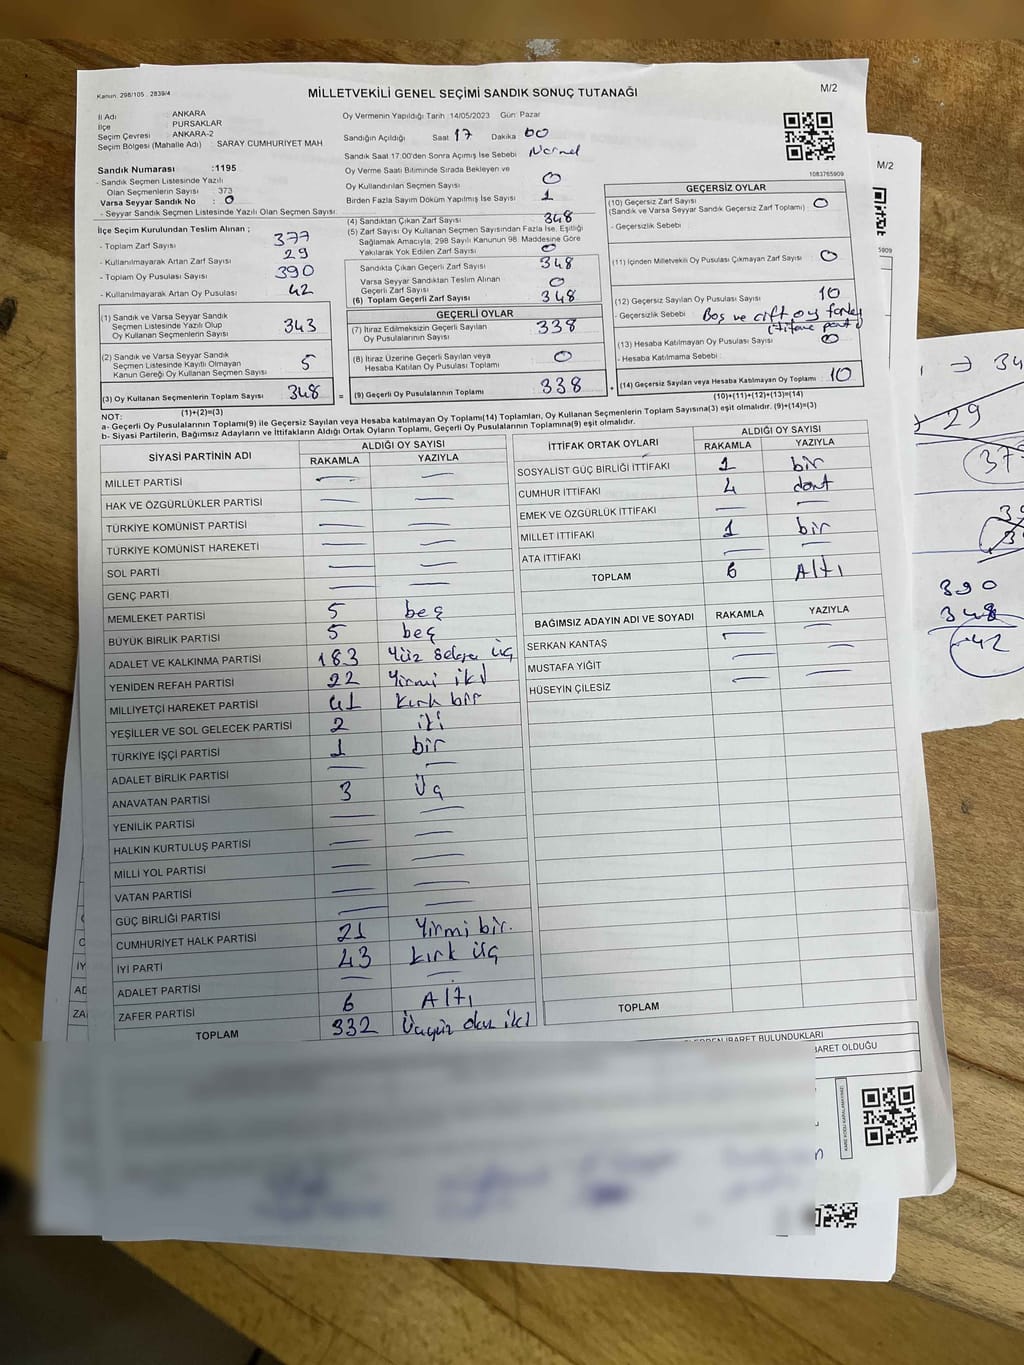 Kanun: 298/105 , 2839/4
MİLLETVEKİLİ GENEL SEÇİMİ SANDIK SONUÇ TUTANAĞI
M/2
İl Adı : ANKARA
İlçe : PURSAKLAR
Seçim Çevresi : ANKARA-2
Seçim Bölgesi (Mahalle Adı) : SARAY CUMHURİYET MAH
Oy Vermenin Yapıldığı Tarih :14/05/2023 Gün: Pazar
Sandığın Açıldığı Saat 17 Dakika 00
Sandık Saat 17:00'den Sonra Açımış İse Sebebi : Normal
Oy Verme Saati Bitiminde Sırada Bekleyen ve
Oy Kullandırılan Seçmen Sayısı : 0
Birden Fazla Sayım Döküm Yapılmış İse Sayısı : 1
1083765909
Sandık Numarası :1195
- Sandık Seçmen Listesinde Yazılı
Olan Seçmenlerin Sayısı : 373
Varsa Seyyar Sandık No : 0
- Seyyar Sandık Seçmen Listesinde Yazılı Olan Seçmen Sayısı:
İlçe Seçim Kurulundan Teslim Alınan ;
- Toplam Zarf Sayısı : 377
- Kullanılmayarak Artan Zarf Sayısı : 29
- Toplam Oy Pusulası Sayısı : 390
- Kullanılmayarak Artan Oy Pusulası : 42
(1) Sandık ve Varsa Seyyar Sandık
Seçmen Listesinde Yazılı Olup
Oy Kullanan Seçmenlerin Sayısı : 343
(2) Sandık ve Varsa Seyyar Sandık
Seçmen Listesinde Kayıtlı Olmayan
Kanun Gereği Oy Kullanan Seçmen Sayısı : 5
(3) Oy Kullanan Seçmenlerin Toplam Sayısı : 348
(1)+(2)=(3)
(4) Sandıktan Çıkan Zarf Sayısı : 348
(5) Zarf Sayısı Oy Kullanan Seçmen Sayısından Fazla İse, Eşitliği
Sağlamak Amacıyla, 298 Sayılı Kanunun 98. Maddesine Göre
Yakılarak Yok Edilen Zarf Sayısı : 0
Sandıkta Çıkan Geçerli Zarf Sayısı : 348
Varsa Seyyar Sandıktan Teslim Alınan
Geçerli Zarf Sayısı : 0
(6) Toplam Geçerli Zarf Sayısı : 348
GEÇERLİ OYLAR
(7) İtiraz Edilmeksizin Geçerli Sayılan
Oy Pusulalarının Toplamı : 338
(8) İtiraz Üzerine Geçerli Sayılan veya
Hesaba Katılan Oy Pusulaları Toplamı : 0
= (9) Geçerli Oy Pusulalarının Toplamı : 338
GEÇERSİZ OYLAR
(10) Geçersiz Zarf Sayısı : 0
(Sandık ve Varsa Seyyar Sandık Geçersiz Zarf Toplamı)
- Geçersizlik Sebebi :
(11) İçinden Milletvekili Oy Pusulası Çıkmayan Zarf Sayısı : 0
(12) Geçersiz Sayılan Oy Pusulası Sayısı : 10
- Geçersizlik Sebebi : Boş ve çift oy
(13) Hesaba Katılmayan Oy Pusulası Sayısı : 0
- Hesaba Katılmama Sebebi :
+ (14) Geçersiz Sayılan veya Hesaba Katılmayan Oy Toplamı : 10
(10)+(11)+(12)+(13)=(14)
NOT:
a- Geçerli Oy Pusulalarının Toplamı(9) ile Geçersiz Sayılan veya Hesaba katılmayan Oy Toplamı(14) Toplamları, Oy Kullanan Seçmenlerin Toplam Sayısına(3) eşit olmalıdır. (9)+(14)=(3)
b- Siyasi Partilerin, Bağımsız Adayların ve İttifakların Aldığı Ortak Oyların Toplamı, Geçerli Oy Pusulalarının Toplamına(9) eşit olmalıdır.
SİYASİ PARTİNİN ADI ALDIĞI OY SAYISI
RAKAMLA YAZIYLA
MİLLET PARTİSİ — —
HAK VE ÖZGÜRLÜKLER PARTİSİ — —
TÜRKİYE KOMÜNİST PARTİSİ — —
TÜRKİYE KOMÜNİST HAREKETİ — —
SOL PARTİ — —
GENÇ PARTİ — —
MEMLEKET PARTİSİ 5 beş
BÜYÜK BİRLİK PARTİSİ 5 beş
ADALET VE KALKINMA PARTİSİ 183 Yüz seksen üç
YENİDEN REFAH PARTİSİ 22 Yirmi iki
MİLLİYETÇİ HAREKET PARTİSİ 41 Kırk bir
YEŞİLLER VE SOL GELECEK PARTİSİ 2 iki
TÜRKİYE İŞÇİ PARTİSİ 1 bir
ADALET BİRLİK PARTİSİ — —
ANAVATAN PARTİSİ 3 Üç
YENİLİK PARTİSİ — —
HALKIN KURTULUŞ PARTİSİ — —
MİLLİ YOL PARTİSİ — —
VATAN PARTİSİ — —
GÜÇ BİRLİĞİ PARTİSİ — —
CUMHURİYET HALK PARTİSİ 21 Yirmi bir.
İYİ PARTİ 43 Kırk üç
ADALET PARTİSİ — —
ZAFER PARTİSİ 6 Altı
TOPLAM 332 Üçyüz otuz iki
İTTİFAK ORTAK OYLARI ALDIĞI OY SAYISI
RAKAMLA YAZIYLA
SOSYALIST GÜÇ BİRLİĞİ İTTİFAKI 1 bir
CUMHUR İTTİFAKI 4 dört
EMEK VE ÖZGÜRLÜK İTTİFAKI — —
MİLLET İTTİFAKI 1 bir
ATA İTTİFAKI — —
TOPLAM 6 Altı
BAĞIMSIZ ADAYIN ADI VE SOYADI RAKAMLA YAZIYLA
SERKAN KANTAŞ — —
MUSTAFA YİĞİT — —
HÜSEYİN ÇİLESİZ — —
TOPLAM
İBARET BULUNDUKLARI
BARET OLDUĞU
M/2
5909
29
37
390
348
42